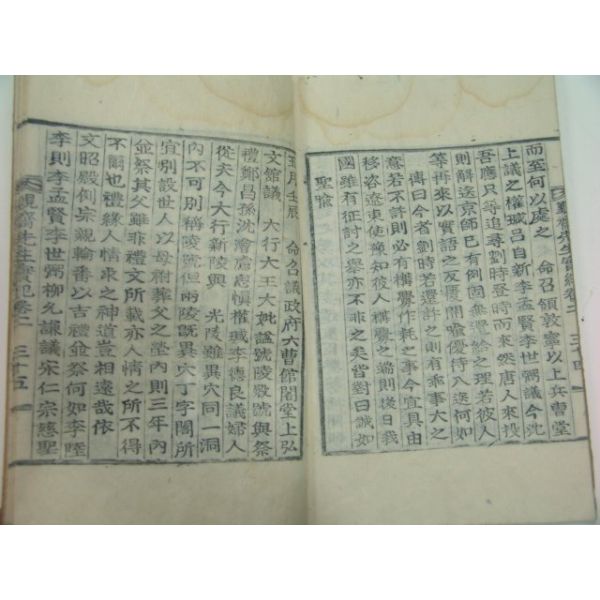 而至何以處之 命召領敦寧以上兵曹堂
上議之權瑊呂自新李孟賢李世弼議今沈
吾應只等追尋劃時登時而來然唐人來投
則解送京師已有例固無還給之理若彼人
等再來以實語之反覆開喩優待入送何如
上曰今者劃時若還許之甚有乖於事大之
意若不許則必有構釁作耗之事今宜具由
移咨遼東使豫知彼人構釁之端則後日我
國雖有征討之擧亦不非之矣皆對曰誠如
聖喩
三十四
五月壬辰 命召議政府六曹館閣堂上弘
文館議 大行大王大妃諡號陵殿號與祭
禮鄭昌孫沈澮盧思愼權瑊李德良議婦人
從夫今大行新陵與 光陵雖異穴同一洞
內不可別稱陵號但兩陵旣異穴丁字閣所
宜別設世人以母祔葬父之塋內則三年內
並祭其父雖非禮文所載亦人情之所不得
不爾也禮緣人情求之神道豈相遠哉依
文昭殿例宗親輪番以吉禮並祭何如李陸
李則李孟賢李世弼柳允謙議宋仁宗慈聖
先生實紀卷二 三十五